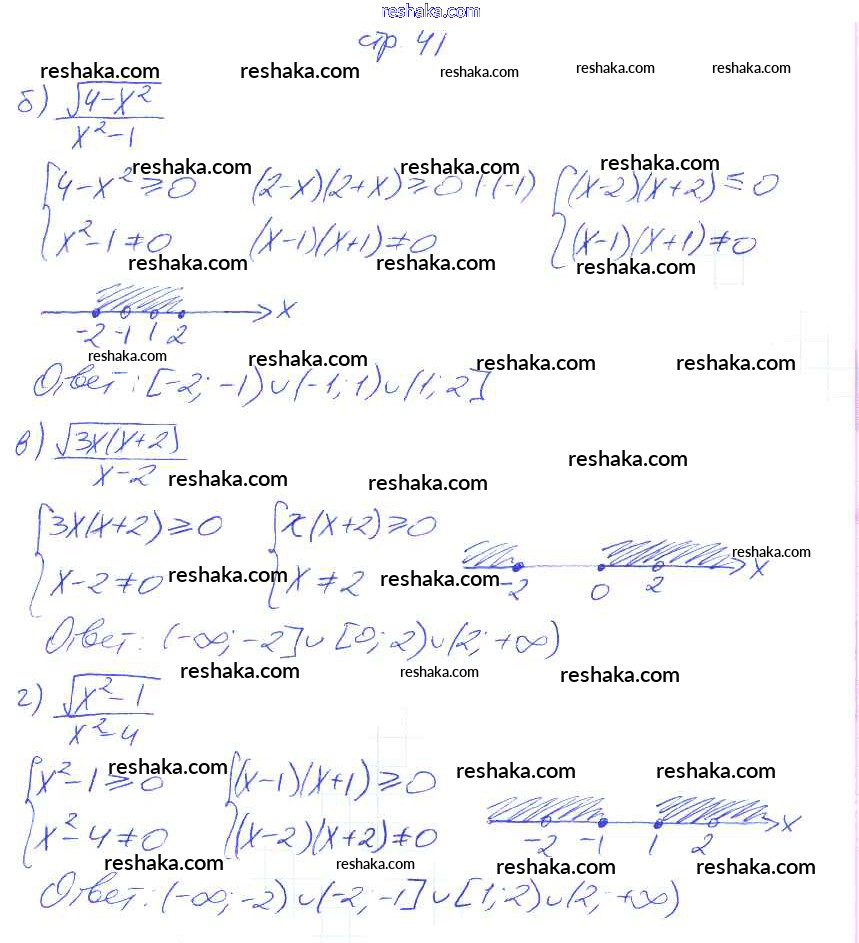 reshaka.com
стр. 41
reshaka.com reshaka.com reshaka.com reshaka.com reshaka.com
б) √(4-x²) / (x²-1)
reshaka.com reshaka.com reshaka.com
{ 4-x² ≥ 0 (2-x)(2+x) ≥ 0 |·(-1) { (x-2)(x+2) ≤ 0
x²-1 ≠ 0 (x-1)(x+1) ≠ 0 (x-1)(x+1) ≠ 0
reshaka.com reshaka.com reshaka.com
-2 -1 1 2 x
reshaka.com reshaka.com reshaka.com reshaka.com
Ответ: [-2; -1) ∪ (-1; 1) ∪ (1; 2]
в) √(3x(x+2)) / (x-2)
reshaka.com reshaka.com reshaka.com
{ 3x(x+2) ≥ 0 { x(x+2) ≥ 0
reshaka.com
x-2 ≠ 0 x ≠ 2 -2 0 2 x
reshaka.com reshaka.com
Ответ: (-∞; -2] ∪ [0; 2) ∪ (2; +∞)
reshaka.com reshaka.com reshaka.com
г) √(x²-1) / (x²-4)
reshaka.com reshaka.com reshaka.com
{ x²-1 ≥ 0 { (x-1)(x+1) ≥ 0
x²-4 ≠ 0 (x-2)(x+2) ≠ 0 -2 -1 1 2 x
reshaka.com reshaka.com reshaka.com reshaka.com
Ответ: (-∞; -2) ∪ (-2; -1] ∪ [1; 2) ∪ (2; +∞)